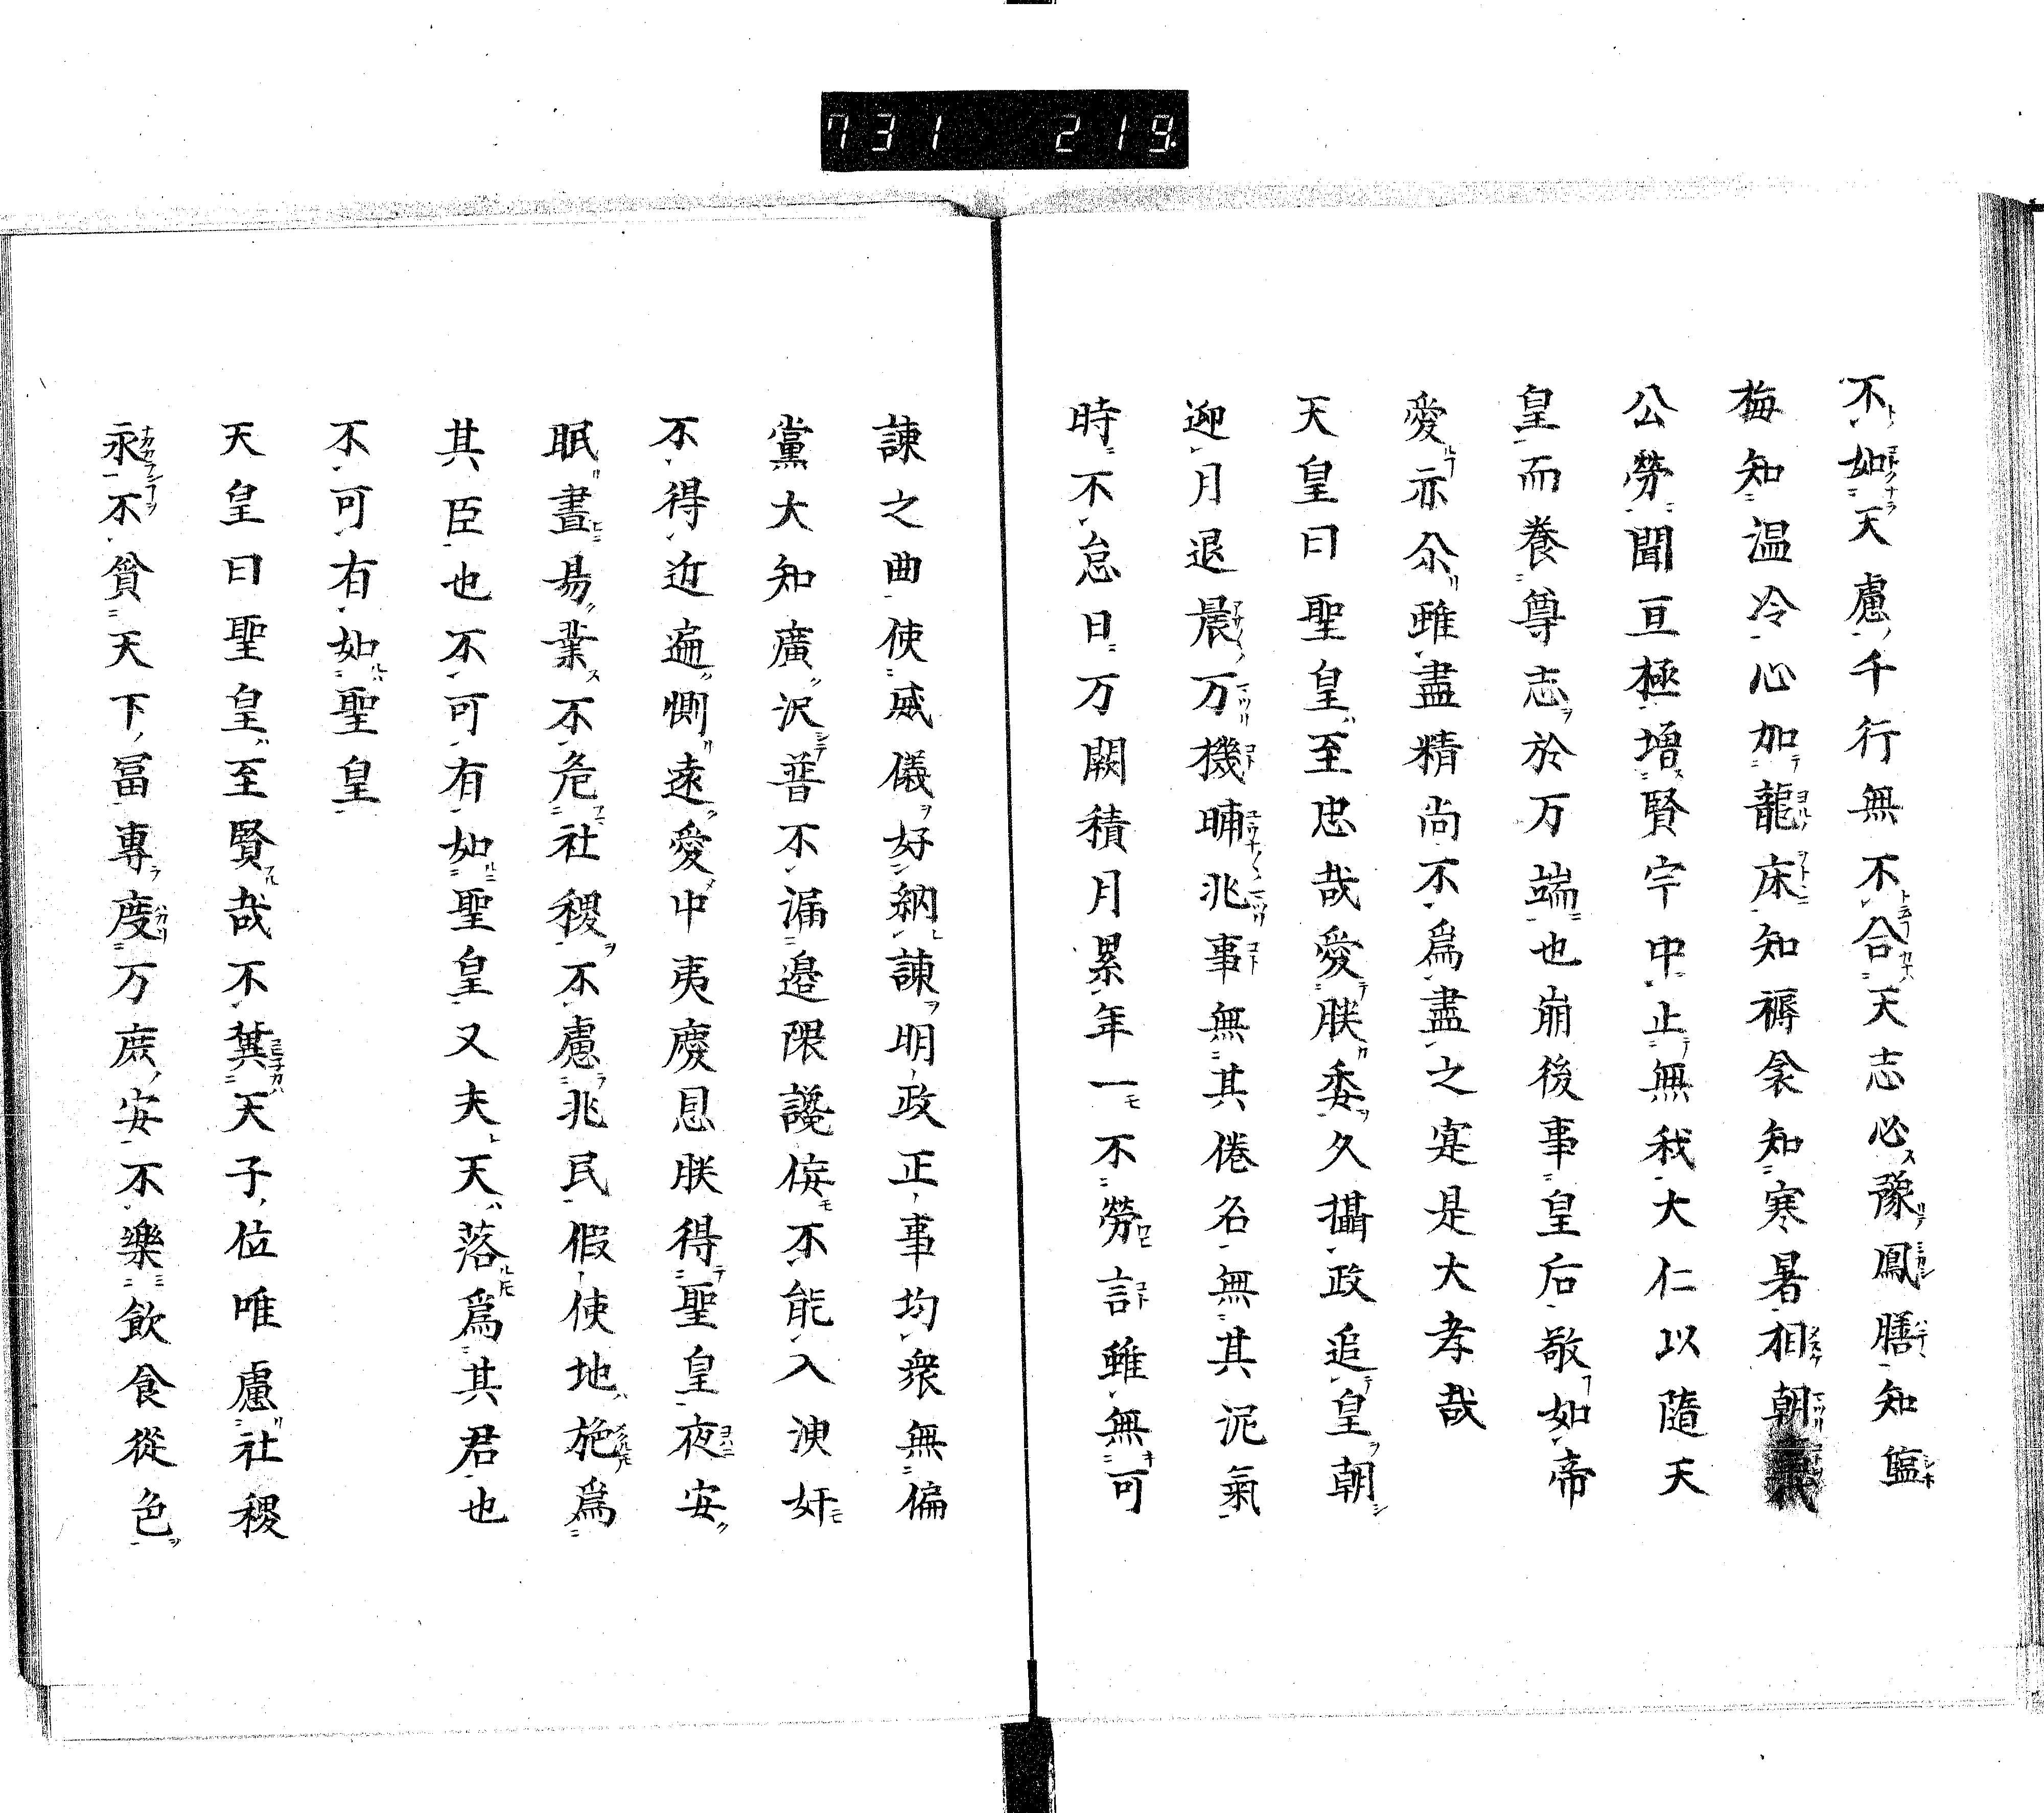 731 219
不如天慮千行無不合天志必豫鳳膳知鹽
梅知温冷心加龍床知褥衾知寒暑相朝
公勞聞亘極增賢宇中止無我大仁以隨天
皇而養尊志於万端也崩後事皇后敬如帝
愛亦尒雖盡精尚不爲盡之寔是大孝哉
天皇曰聖皇至忠哉愛朕委久攝政追皇朝
迎月退晨万機晡兆事無其倦名無其泥氣
時不怠日万闕積月累年一不勞言雖無可
諫之曲使威儀好納諫明政正事均衆無偏
黨大知廣沢普不漏邉限讒侫不能入諛奸
不得近遍惻遠愛中夷慶恩朕得聖皇夜安
眠晝易業不危社稷不慮兆民假使地施爲
其臣也不可有如聖皇又夫天落爲其君也
不可有如聖皇
天皇曰聖皇至賢哉不冀天子位唯慮社稷
永不貧天下冨專度万庶安不樂飲食從色